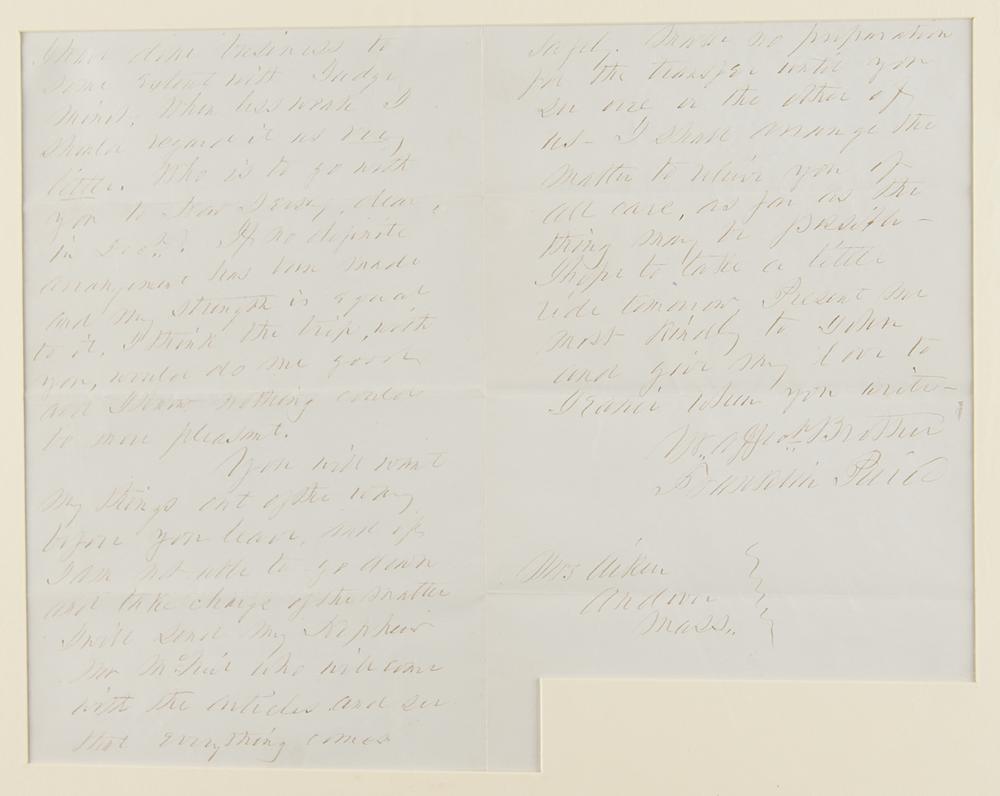 I have done business to
some extent with Judge
Minot. When less weak I
should regard it as very
little. Who is to go with
you to New Jersey, dear,
in Octr.? If no definite
arrangement has been made
and my strength is equal
to it, I think the trip, with
you, would do me good
and I know nothing could
be more pleasant.
You will want
my things out of the way
before you leave, and if
I am not able to go down
and take charge of the matter
I will send my Nephew
Mr McNeil who will come
with the articles and see
that everything comes
safely. Make no preparation
for the transfer until you
see one or the other of
us - I shall arrange the
matter to relieve you of
all care, as far as the
thing may be possible -
I hope to take a little
ride tomorrow. Present me
most kindly to John
and give my love to
when you write -
Yr. affect. Brother
Franklin Pierce
Mrs Aiken
Andover
Mass.